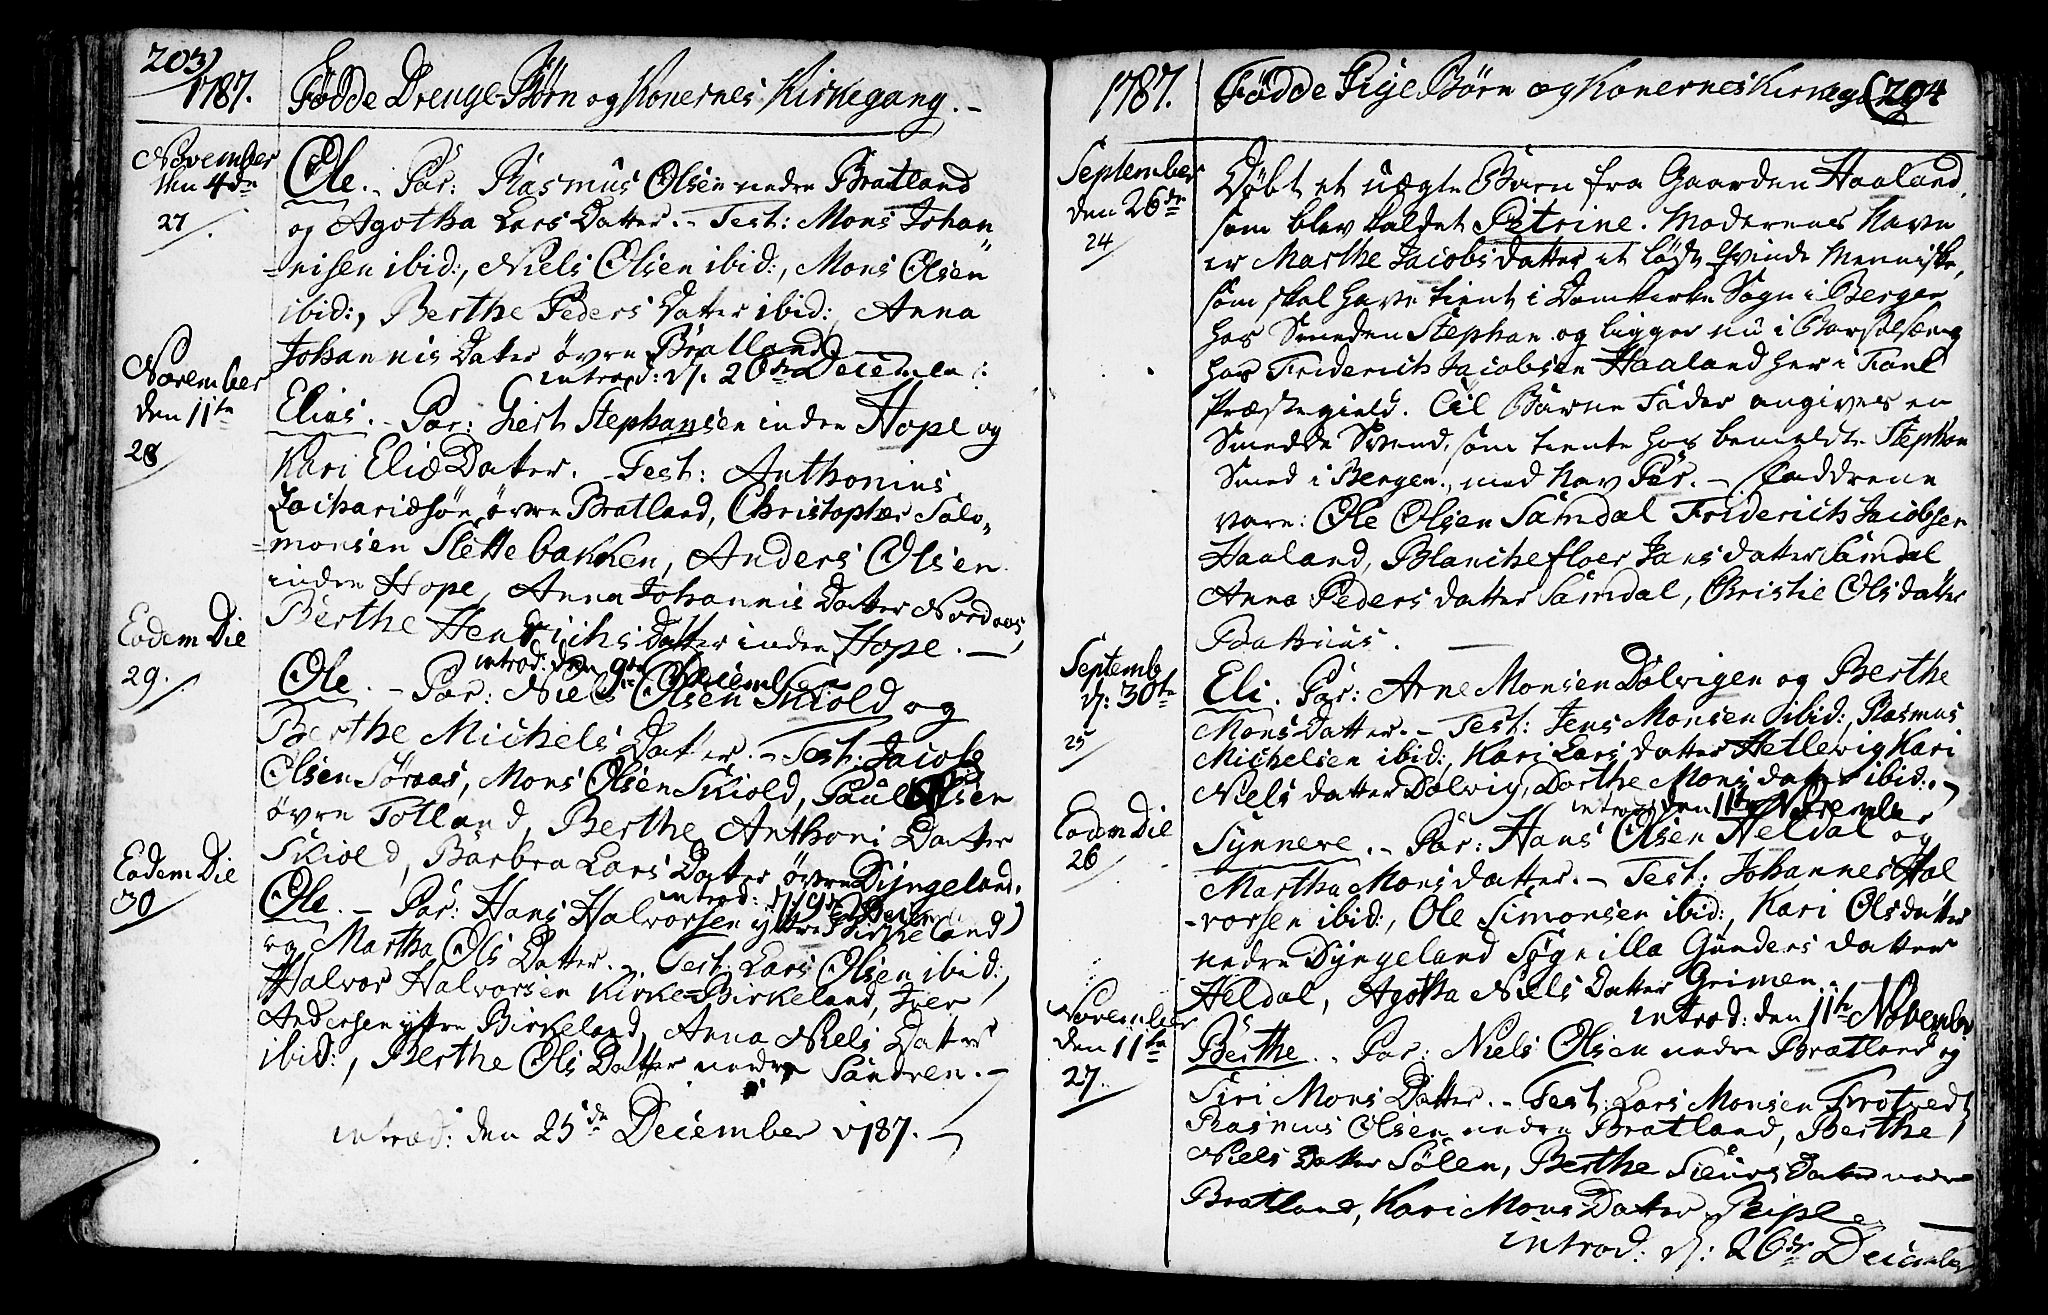 203)
1787. Fødde Drenge Børn og Konernes Kirkegang. -
November
den 4de
27
Ole. - Par: Rasmus Olsen nedre Bratland
og Agotha Lars Datter. - Test: Mons Johan
nisen ibid:, Niels Olsen ibid:, Mons Olsen
ibid:, Berthe Peders Datter ibid:, Anna
Johannis Datter øvre Bratland
introd: d: 26de Decembr:
November
den 11te
28
Elias. - Par: Giert Stephansen inden Hope og
Kari Eliæ Datter. - Test: Anthonius
Zachariæsøn øvre Bratland, Christopher Salo-
monsen Slettebakken, Anders Olsen
inden Hope, Anna Johannis Datter Nordaas
Berthe Henrichs Datter inden Hope. -
introd: den 9de December
Eodem Die
29.
Ole. - Par: Niels Olsen Skiold og
Berthe Michels Datter. - Test: Jacob
Olsen Søraas, Mons Olsen Skiold, Paul Olsen
øvre Totland, Berthe Anthoni Datter
Skiold, Barbra Lars Datter øvre Dyngeland.
introd: d: 9de Decem
Eodem Die
30
Ole. - Par: Hans Halvorsen yttre Birkeland
og Martha Ols Datter. - Test: Lars Olsen ibid:,
Halvor Halvorsen Kirke-Birkeland, Iver
Andersen yttre Birkeland, Anna Niels Datter
ibid:, Berthe Ols Datter nedre Sandven. -
introd: den 25de December 1787. -
1787. Fødde Pige Børn og Konernes Kirkegang (204
September
den 26de
24
Døbt et uægte Barn fra Gaarden Haaland,
som blev kaldet Petrine. Moderens Navn
er Marthe Jacobs datter et løst Qvinde Menniske,
som skal have tient i Domkirke Sogn i Bergen
hos Smeden Stephan og ligger nu i Barselseng
hos Friderich Jacobsen Haaland her i Fane
Præstegield. Til Barne Fader angives en
Smedde Svend, som tiente hos bemeldte Stephan
Smed i Bergen, med Nav Per. - Fadderne
vare: Ole Olsen Samdal Friderich Jacobsen
Haaland, Blanchefloer Jans datter Samdal
Anna Peders datter Samdal, Christie Ols datter
Bakhuus.
Septemb
d: 30te
25
Eli. Par: Arne Monsen Dolvigen og Berthe
Mons Datter. - Test: Jens Monsen ibid:, Rasmus
Michelsen ibid:, Kari Lars datter Hetlevig Kari
Niels datter Dolvig, Dorthe Mons datter ibid:. -
introd: den 11te Novembr
Eodem Die
26
Synneve. - Par: Hans Olsen Heldal og
Martha Mons datter. - Test: Johannes Hal
-vorsen ibid:, Ole Simonsen ibid:, Kari Ols datter
nedre Dyngeland Sygnilla Gunders datter
Heldal, Agotha Niels Datter Grimen. -
introd: den 11te November
November
den 11te
27.
Berthe. - Par: Niels Olsen nedre Bratland og
Siri Mons Datter. - Test: Lars Monsen Trotvedt
Rasmus Olsen nedre Bratland, Berthe
Niels Datter Sølen, Berthe Siurs Datter nedre
Bratland, Kari Mons Datter Riple. -
introd: d: 26de December